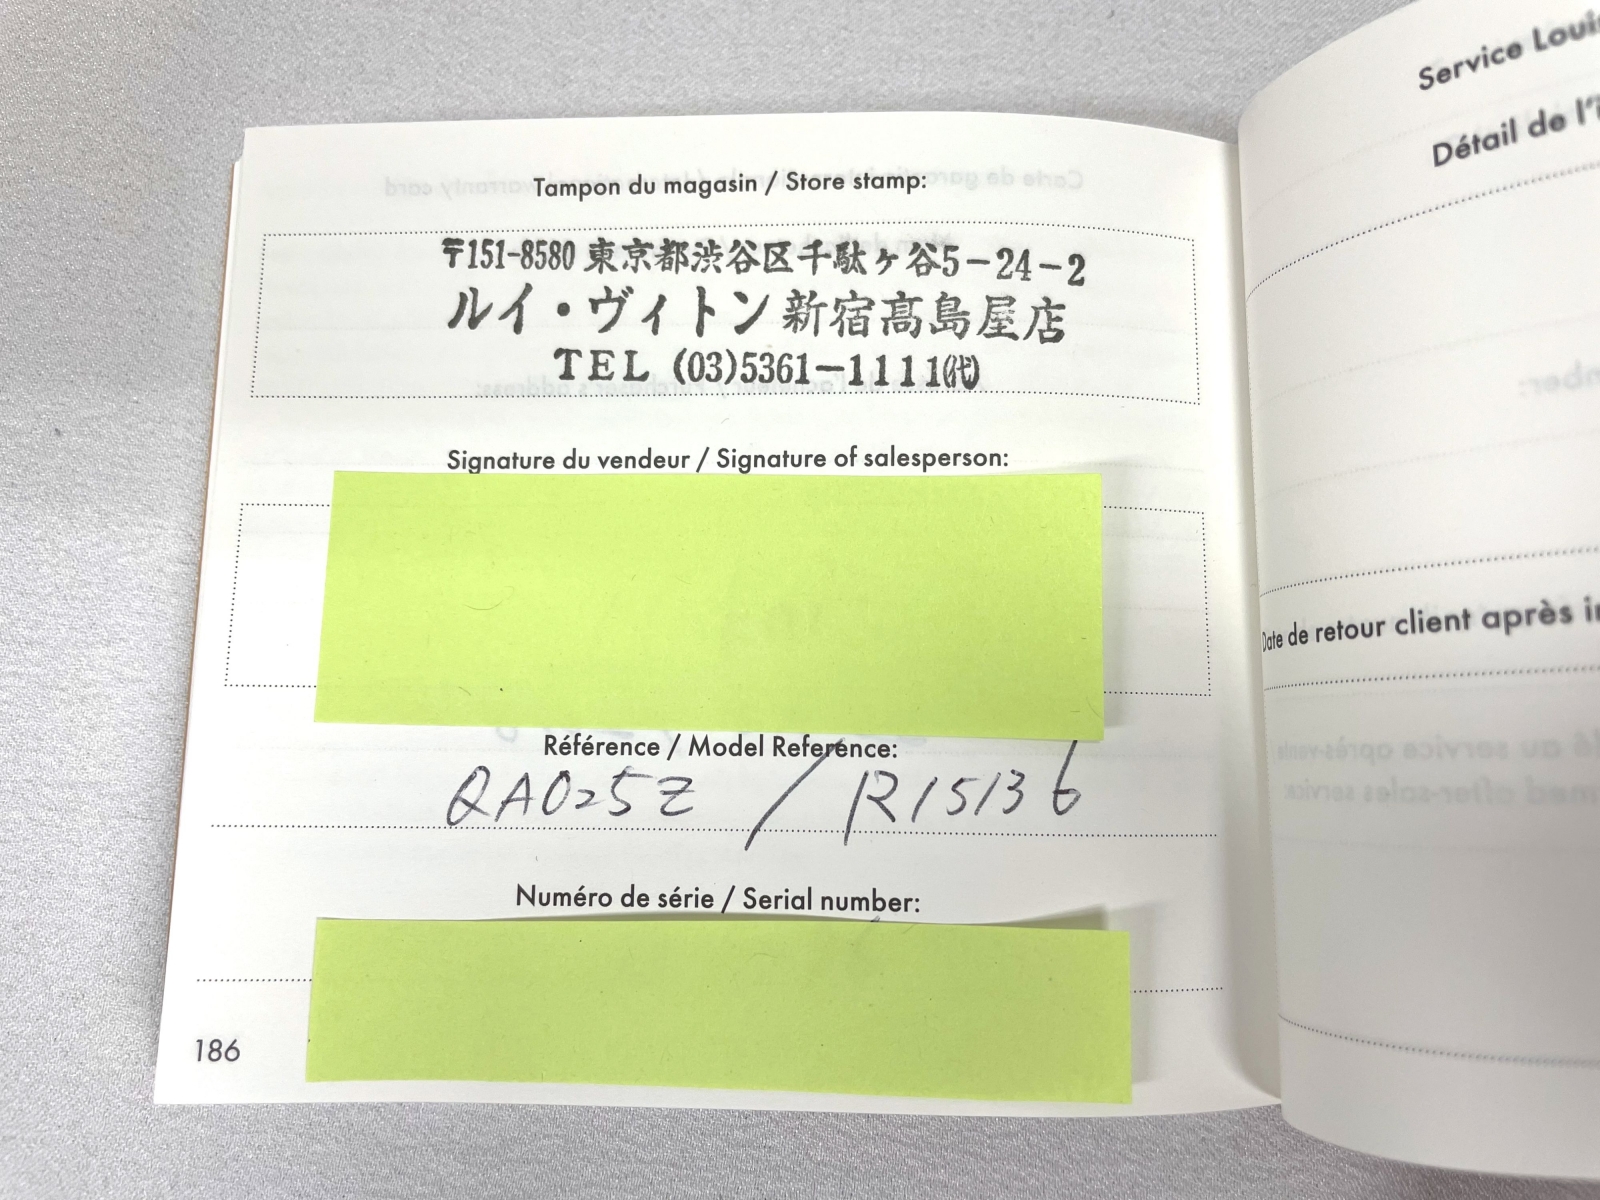 Tampon du magasin / Store stamp:
〒151-8580 東京都渋谷区千駄ヶ谷5-24-2
ルイ・ヴィトン新宿髙島屋店
TEL (03)5361-1111㈹
Signature du vendeur / Signature of salesperson:
Référence / Model Reference:
QA025Z / R15136
Numéro de série / Serial number:
186
Service Loui
Détail de l'i
Date de retour client après in